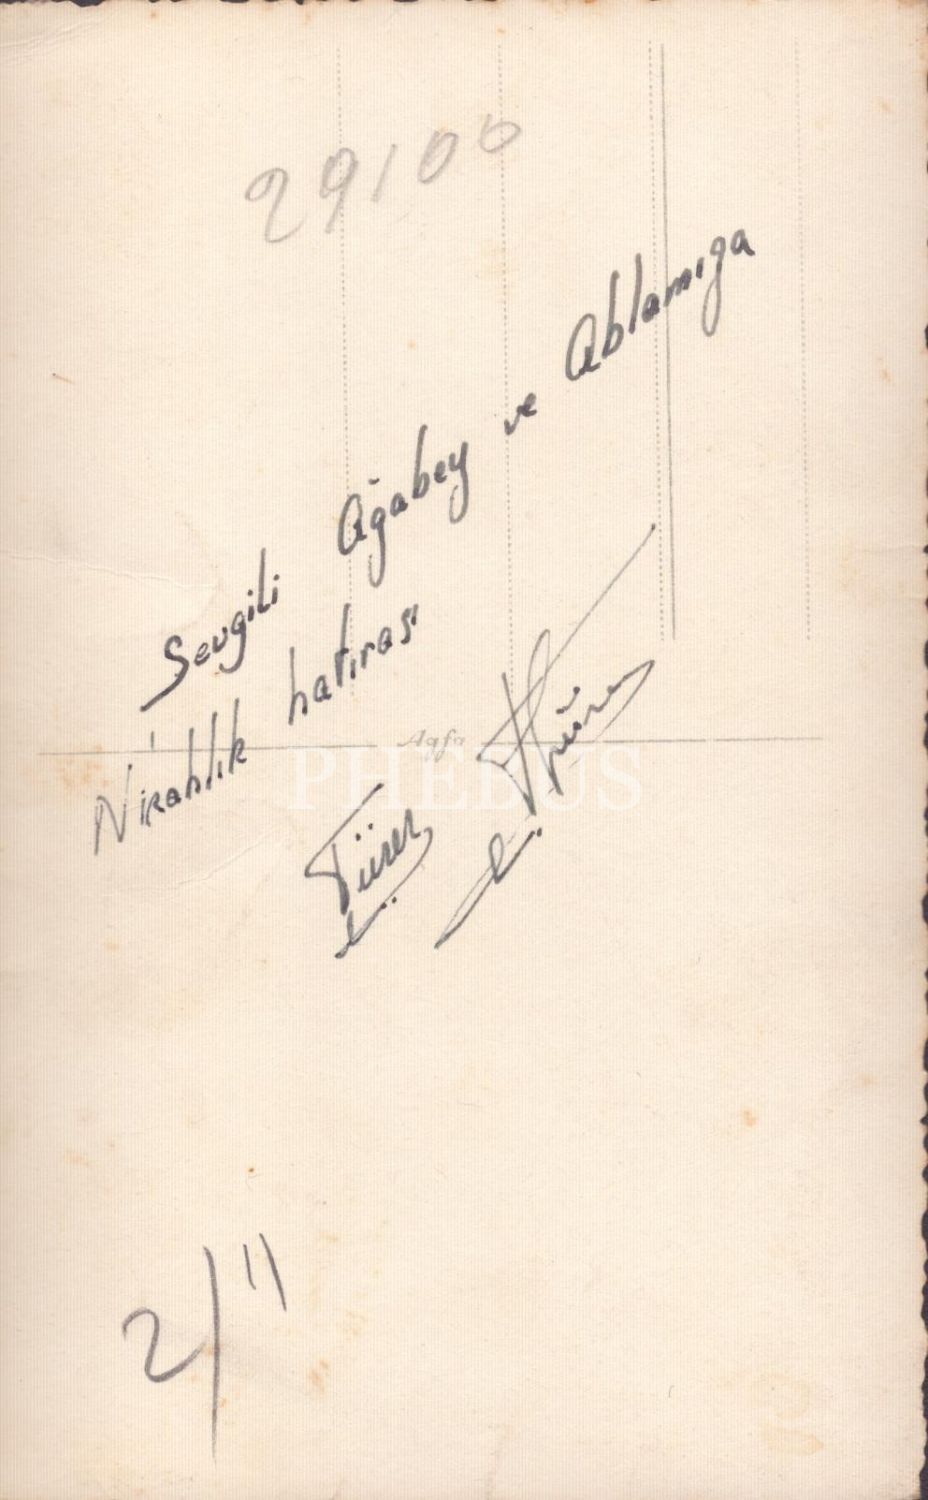 29100
Sevgili Ağabey ve Ablamıza
Nikahlık hatırası
Agfa
PHEBUS
2/11